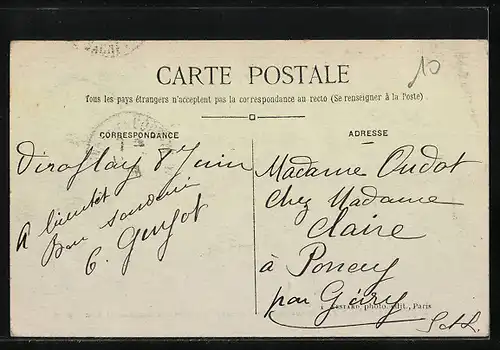 10
CARTE POSTALE
Tous les pays étrangers n'acceptent pas la correspondance au recto (Se renseigner à la Poste)
CORRESPONDANCE
Viroflay 8 Juin
A bientôt
Bon souvenir
C. Guyot
ADRESSE
Madame Oudot
chez Madame
Claire
à Poncey
par Gévry
photo. édit., Paris